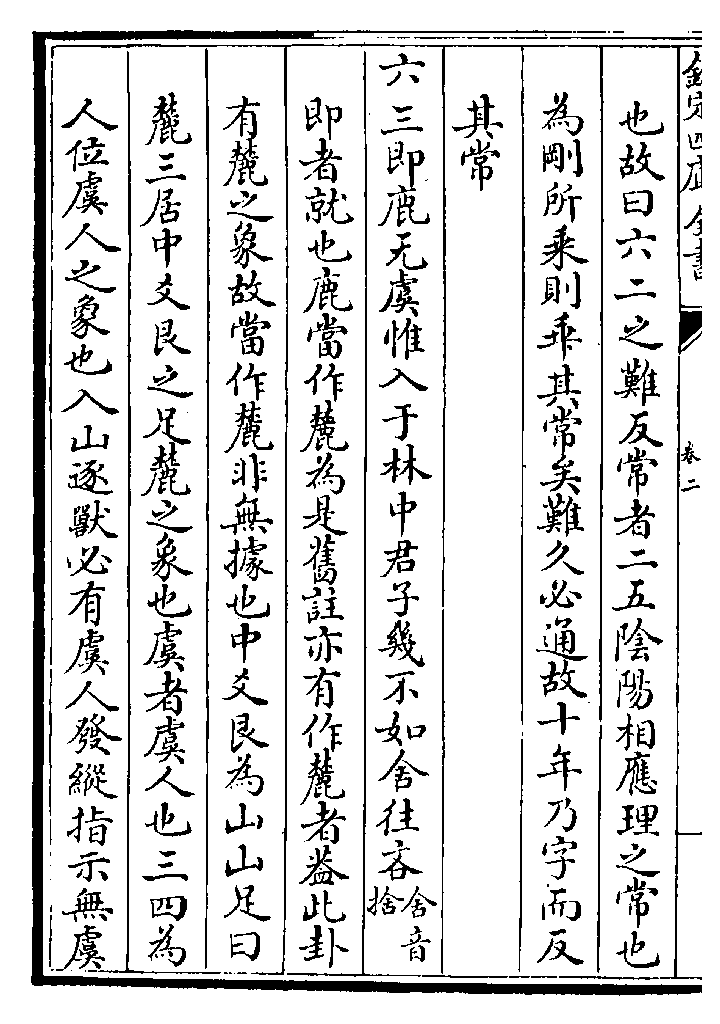 欽定四庫全書
卷二
也故曰六二之難反常者二五陰陽相應理之常也
為剛所乘則乖其常矣難久必通故十年乃字而反
其常
六三即鹿无虞惟入于林中君子幾不如舍往吝舍音捨
即者就也鹿當作麓為是舊註亦有作麓者蓋此卦
有麓之象故當作麓非無據也中爻艮為山山足曰
麓三居中爻艮之足麓之象也虞者虞人也三四為
人位虞人之象也入山逐獸必有虞人發縱指示無虞